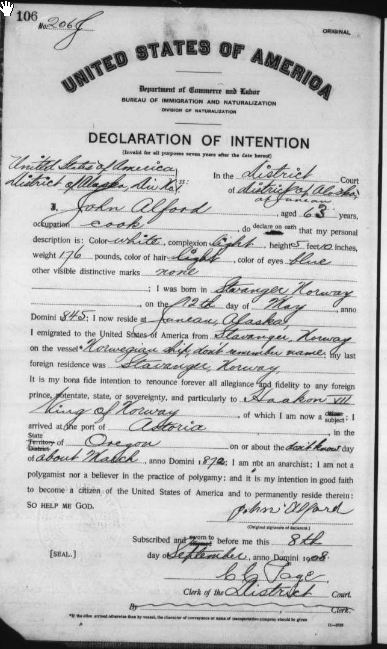 106
No. 206 J
ORIGINAL
UNITED STATES OF AMERICA
Department of Commerce and Labor
BUREAU OF IMMIGRATION AND NATURALIZATION
DIVISION OF NATURALIZATION
DECLARATION OF INTENTION
(Invalid for all purposes seven years after the date hereof)
United States of America
District of Alaska, Div. No. 1
In the District Court
of District of Alaska,
at Juneau
I, John Alford, aged 63 years,
occupation cook, do declare on oath that my personal
description is: Color white, complexion light, height 5 feet 10 inches,
weight 176 pounds, color of hair light, color of eyes blue
other visible distinctive marks none
; I was born in Stavanger Norway
, on the 12th day of May, anno
Domini 1845; I now reside at Juneau, Alaska,
I emigrated to the United States of America from Stavanger, Norway
on the vessel* Norwegian ship, dont remember name; my last
foreign residence was Stavanger, Norway.
It is my bona fide intention to renounce forever all allegiance and fidelity to any foreign
prince, potentate, state, or sovereignty, and particularly to Haakon VII
King of Norway, of which I am now a subject; I
arrived at the port of Astoria, in the
State
Territory
District
of Oregon on or about the don't know day
of about March, anno Domini 1872; I am not an anarchist; I am not a
polygamist nor a believer in the practice of polygamy; and it is my intention in good faith
to become a citizen of the United States of America and to permanently reside therein:
SO HELP ME GOD.
John Alford
(Original signature of declarant.)
Subscribed and sworn to before me this 8th
[SEAL.] day of September, anno Domini 1908.
C C Page.
Clerk of the District Court.
By Clerk.
*If the alien arrived otherwise than by vessel, the character of conveyance or name of transportation company should be given